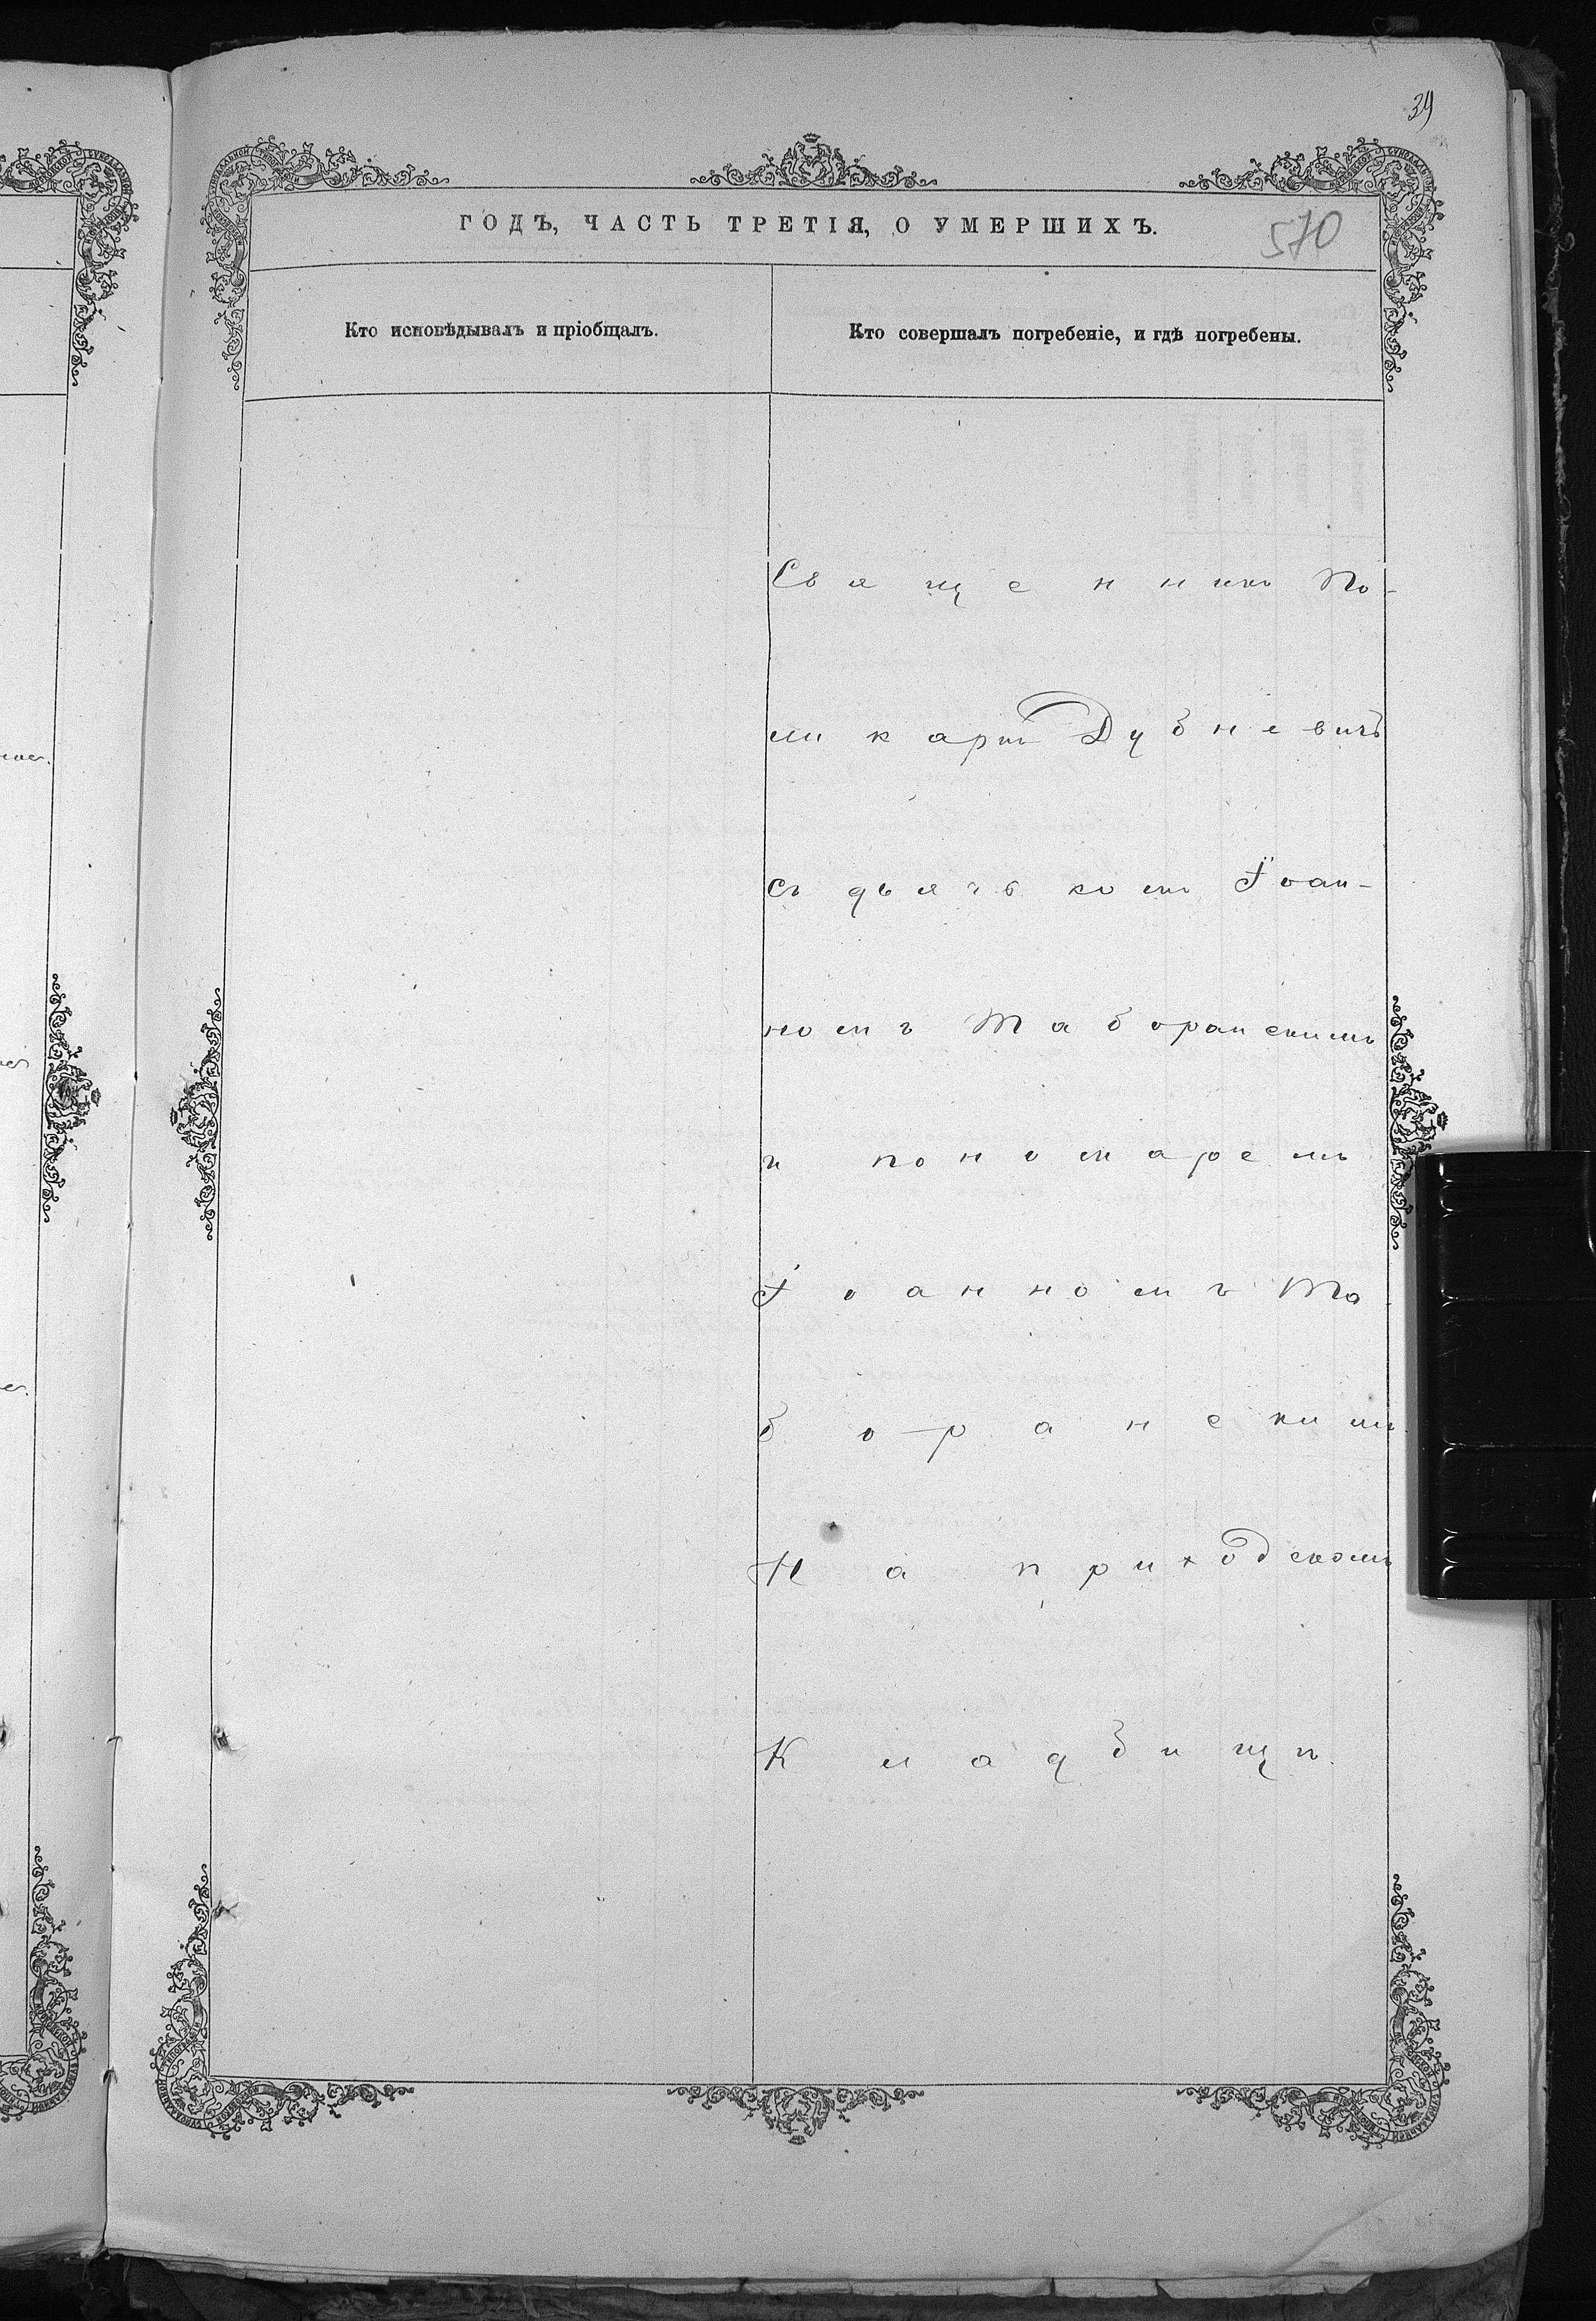 39
ГОДЪ, ЧАСТЬ ТРЕТІЯ, О УМЕРШИХЪ.
570
Кто исповѣдывалъ и пріобщалъ.
Кто совершалъ погребеніе, и гдѣ погребены.
Священникъ По-
ликарпъ Дубневичъ
съ дьячкомъ Іоан-
номъ Таборанскимъ
и пономаремъ
Іоанномъ Та
боранскимъ
На приходскомъ
Кладбищѣ.